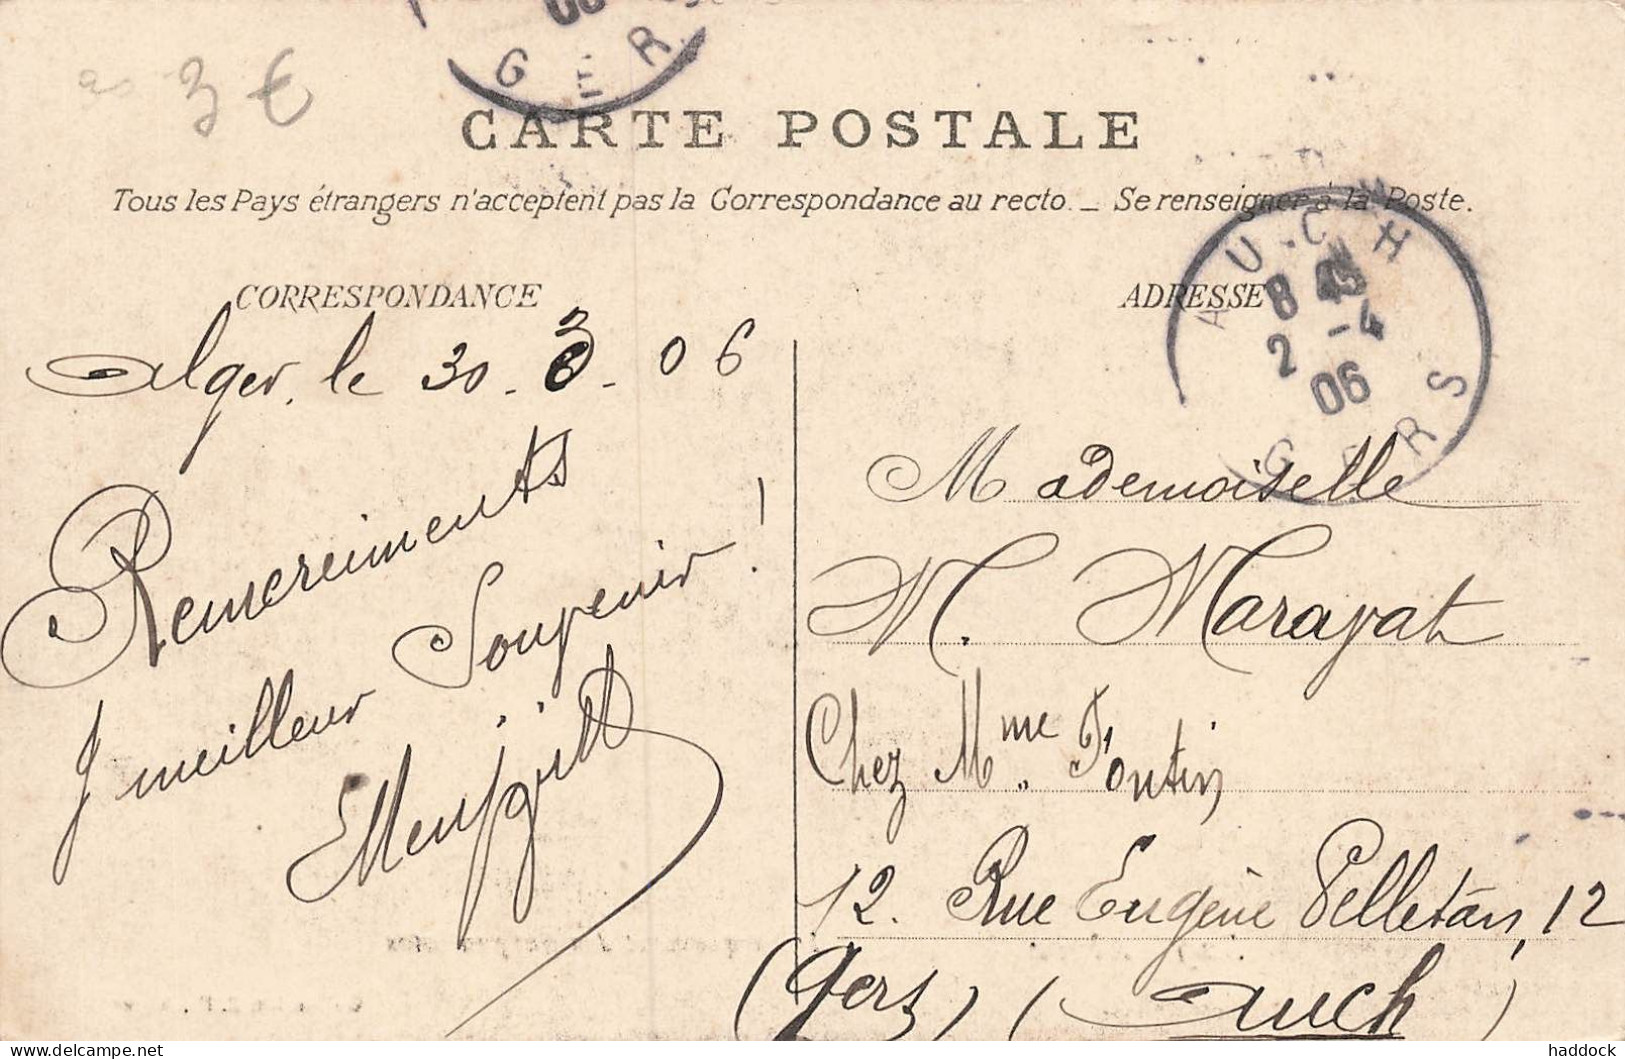 3 €
06
G E R
CARTE POSTALE
Tous les Pays étrangers n'acceptent pas la Correspondance au recto. _ Se renseigner à la Poste.
CORRESPONDANCE
Alger, le 30 - 3 - 06
Remerciments
& meilleur Souvenir !
ADRESSE
AUCH
8 45
2 -4
06
GERS
Mademoiselle
M. Marayat
Chez Mme Pontin
12. Rue Eugène Pelletan, 12
(Gers) (Auch)
delcampe.net
haddock